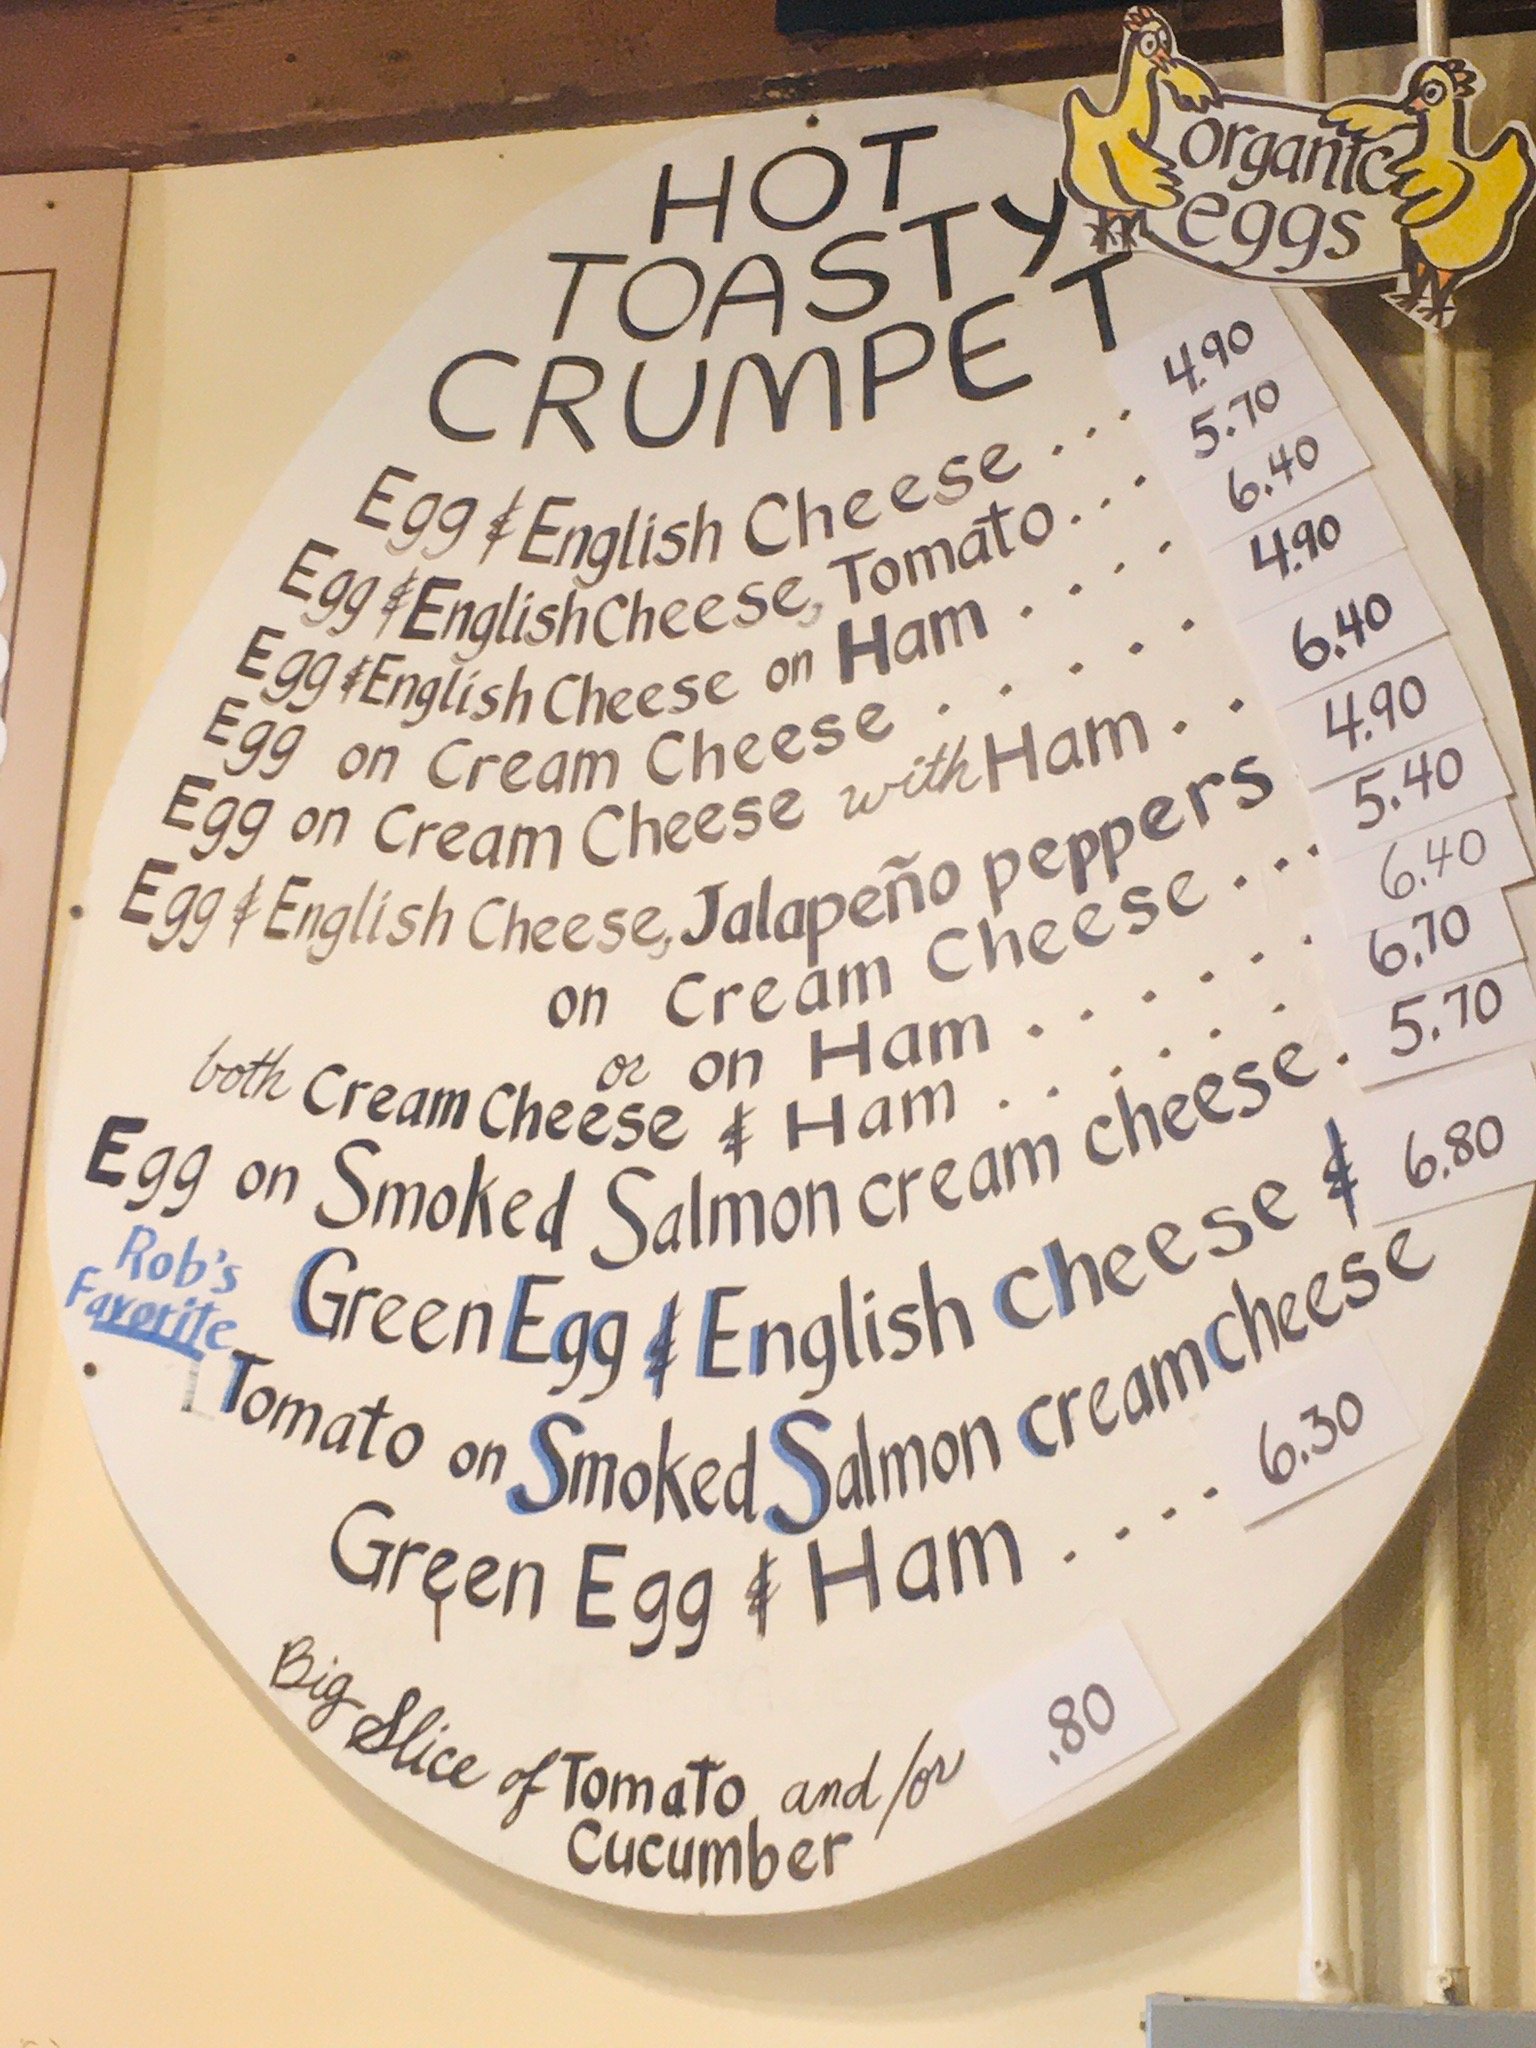 organic
eggs
HOT
TOASTY
CRUMPET
Egg & English Cheese . . . 4.90
Egg & English Cheese, Tomato . . . 5.70
Egg & English Cheese on Ham . . . . 6.40
Egg on Cream Cheese . . . . . 4.90
Egg on Cream Cheese with Ham . . 6.40
Egg & English Cheese, Jalapeño peppers 4.90
on Cream Cheese . . . 5.40
or on Ham . . . . . . 6.40
both Cream Cheese & Ham . . . . . . 6.70
Egg on Smoked Salmon cream cheese . 5.70
Rob's
Favorite
Green Egg & English cheese & 6.80
Tomato on Smoked Salmon cream cheese
Green Egg & Ham . . . . 6.30
Big Slice of Tomato and/or .80
Cucumber